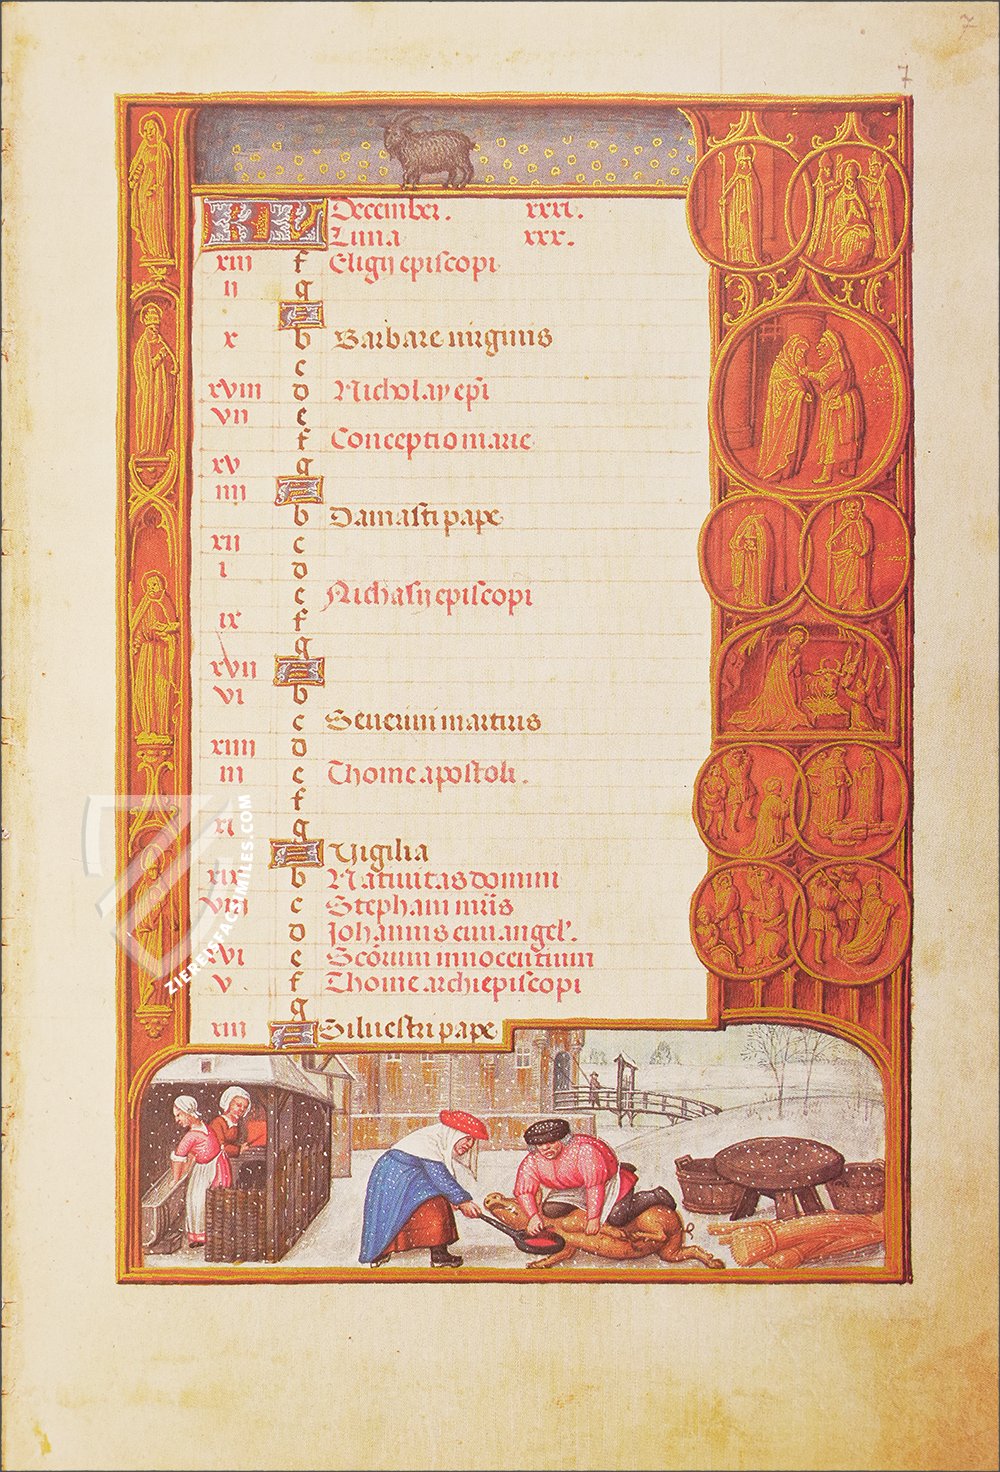 7
7
KL December. xxxi.
Luna xxx.
xiii f Eligij episcopi
ii g
A
x b Barbare uirginis
c
xviii d Nicholay ep̄i
vii e
f Conceptio marie
xv g
iiii A
b Damasti pape
xii c
i d
e Nichasij episcopi
ix f
g
xvii A
vi b
c Seuerini martiris
xiiii d
iii e Thome apostoli.
f
xi g
A Vigilia
xix b Natiuitas domini
viii c Stephani mr̄is
d Johannis euuangel'.
xvi e Scōrum innocentium
v f Thome archiepiscopi
g
xiii A Siluestri pape
ZIEREIS FACSIMILES.COM